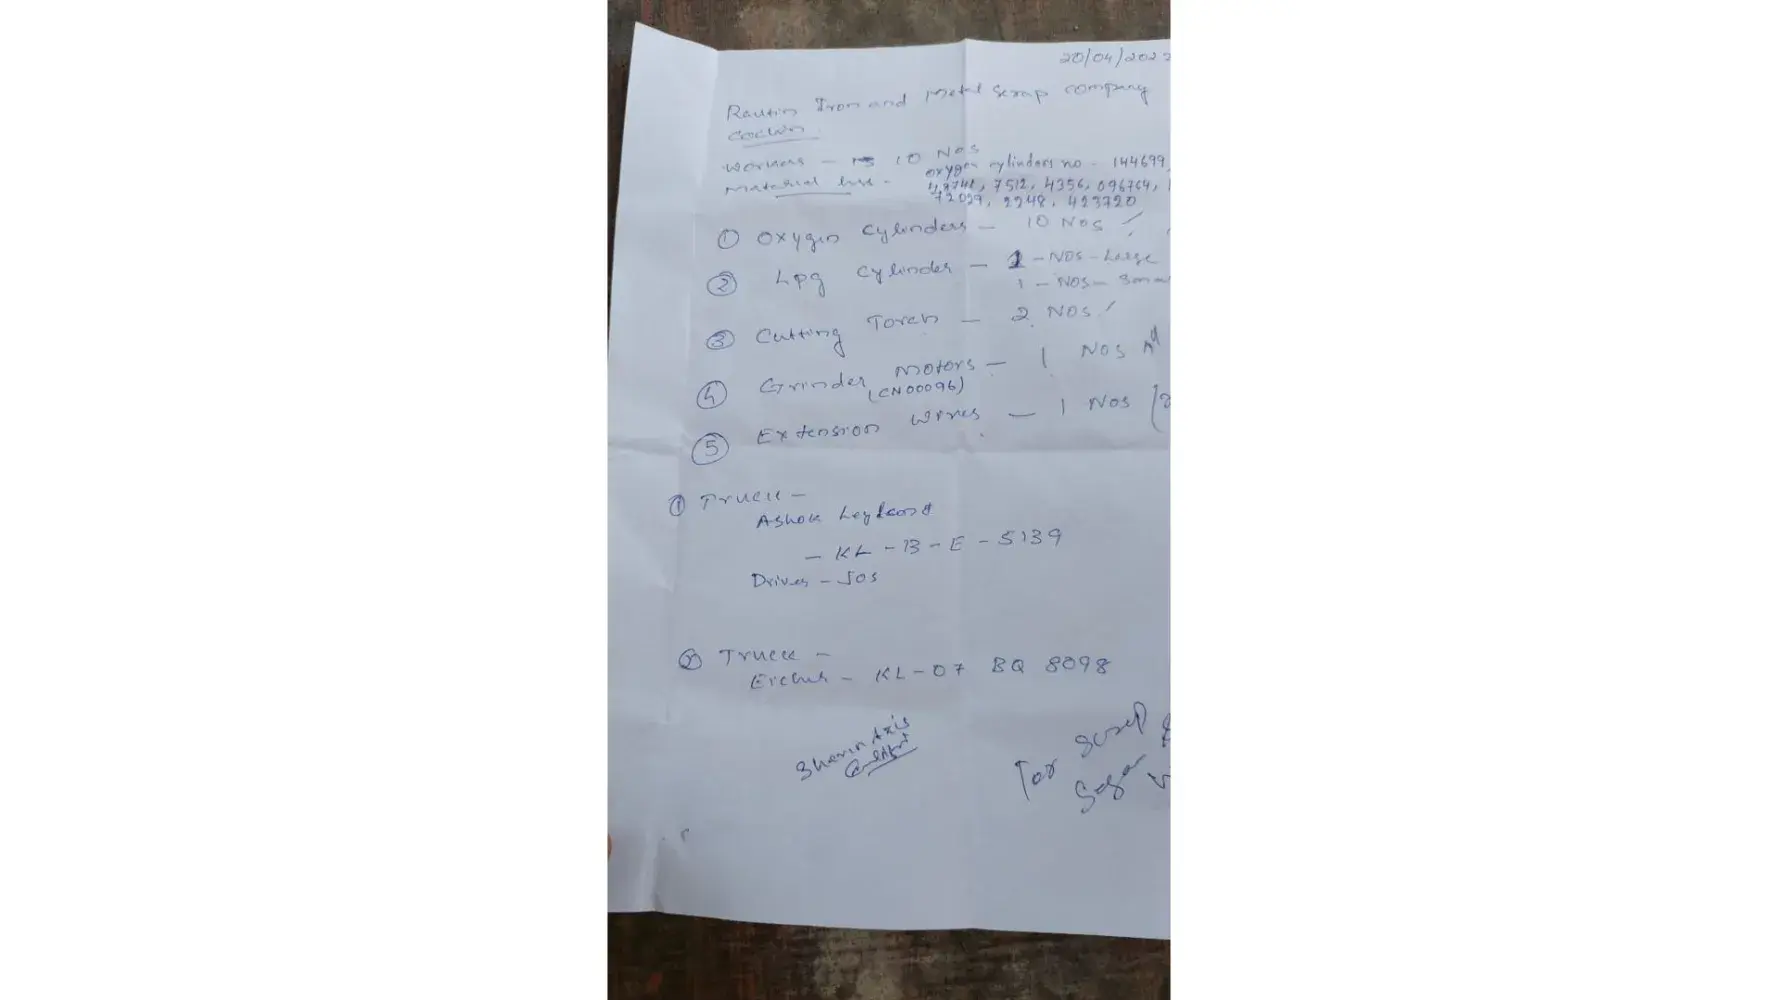 20/04/202
Rautin Iron and Metal Scrap company
Cochin
Workers - 10 NOS
Material list - oxygen cylinders no - 144699,
48741, 7512, 4356, 096764,
72029, 2248, 423720
① Oxygen Cylinders - 10 NOS
② Lpg Cylinder - 1 - NOS - Large
1 - NOS - Sma
③ Cutting Torch - 2 NOS
④ Grinder Motors - 1 NOS
(CN00096)
⑤ Extension wires - 1 NOS
① Truck -
Ashok Leyland
- KL - 13 - E - 5139
Driver - Jos
② Truck -
Eicher - KL - 07 BQ 8098
For